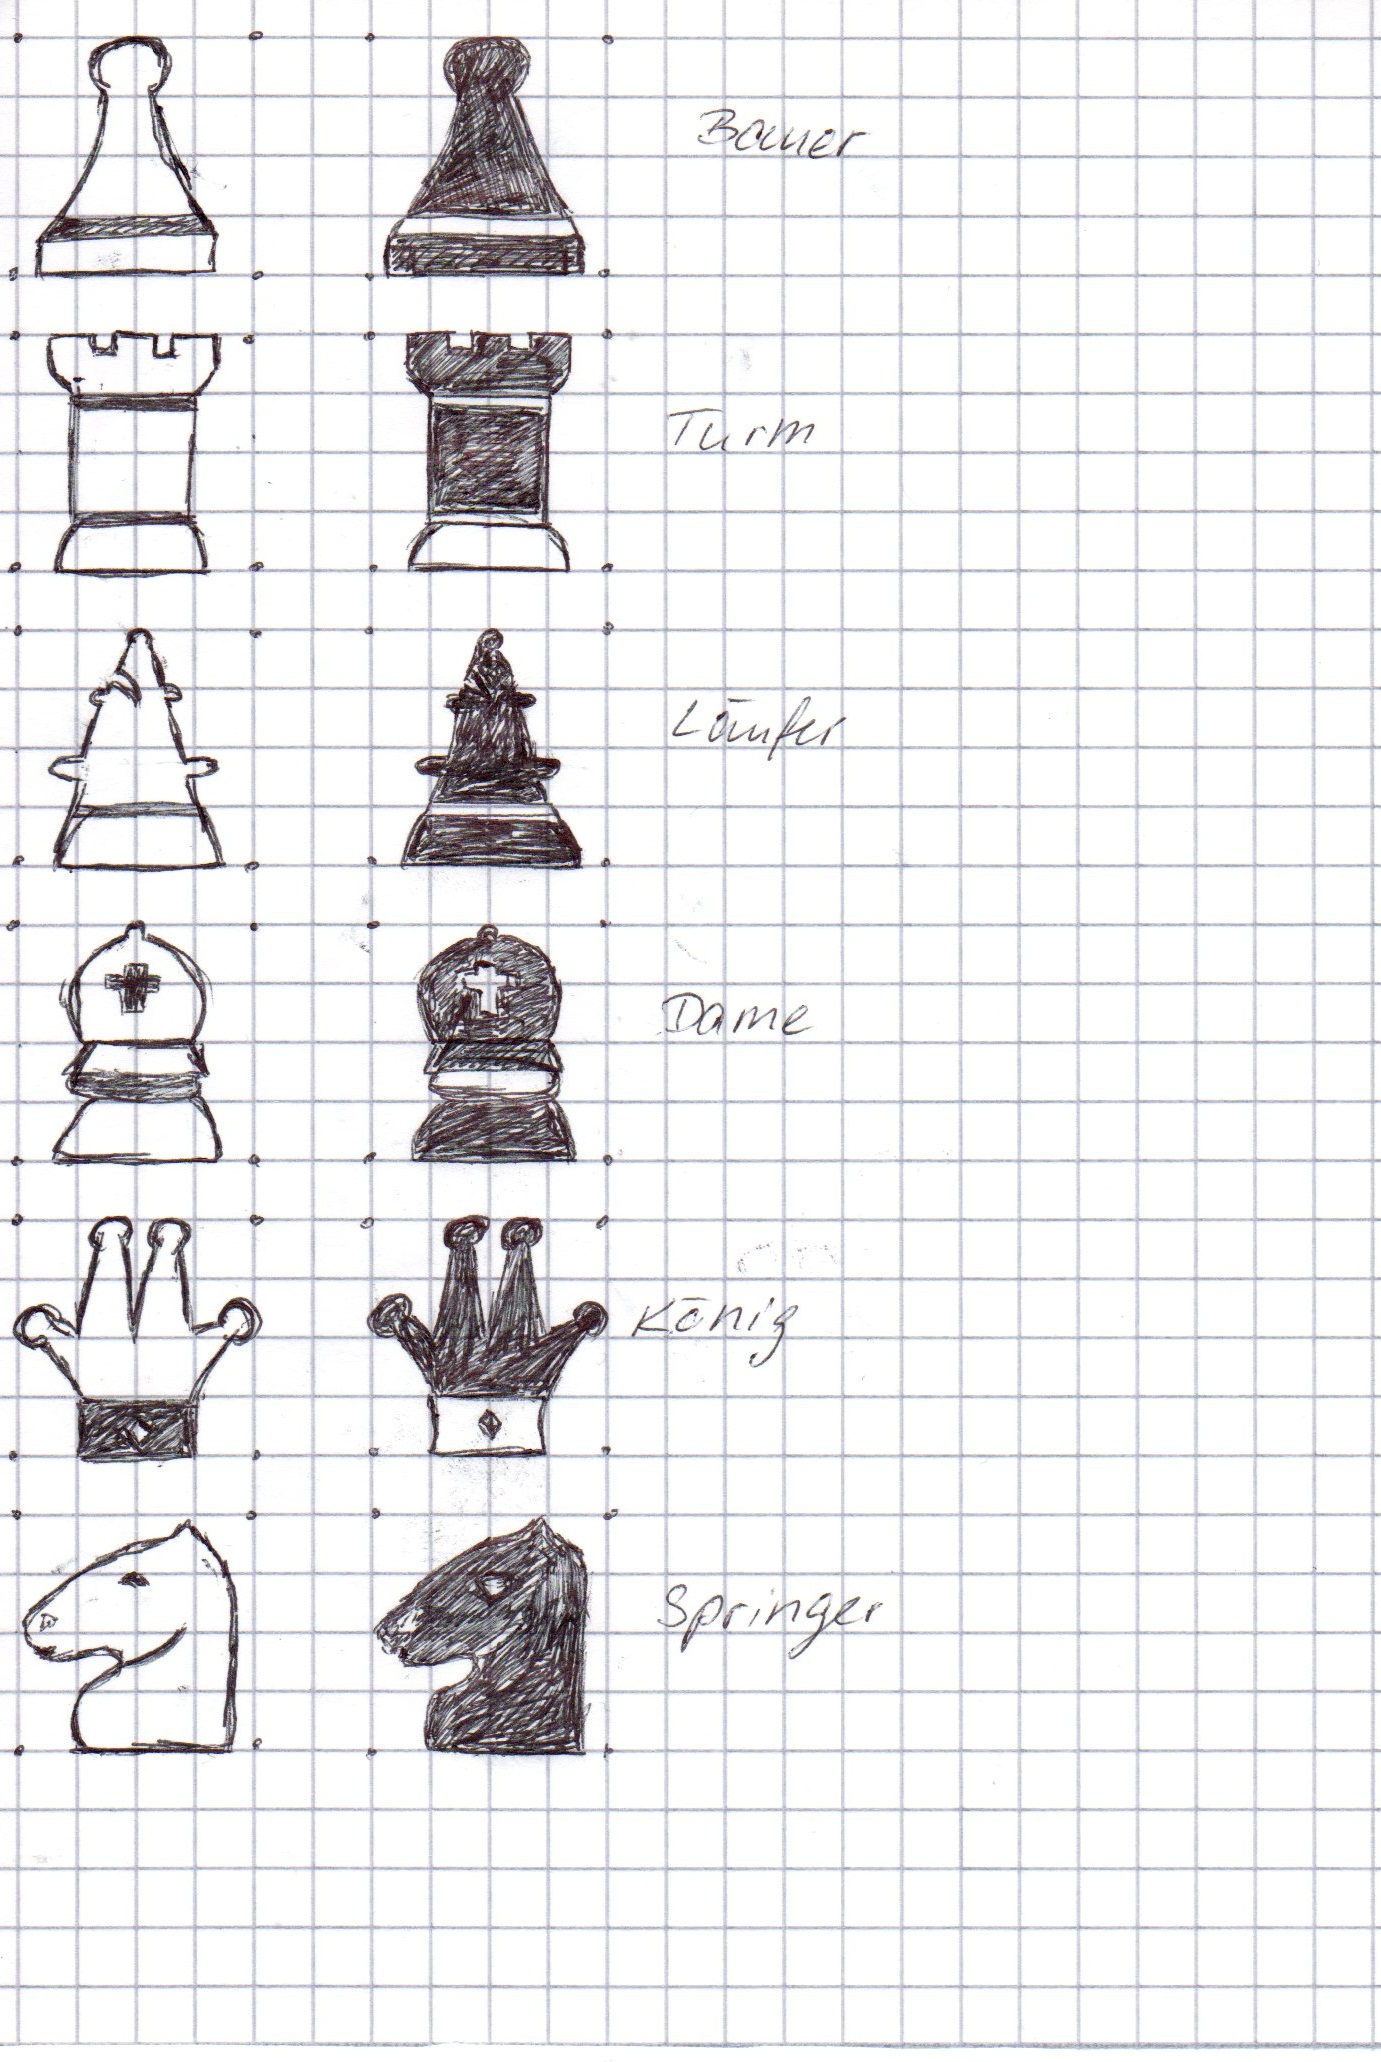 Bauer
Turm
Läufer
Dame
König
Springer